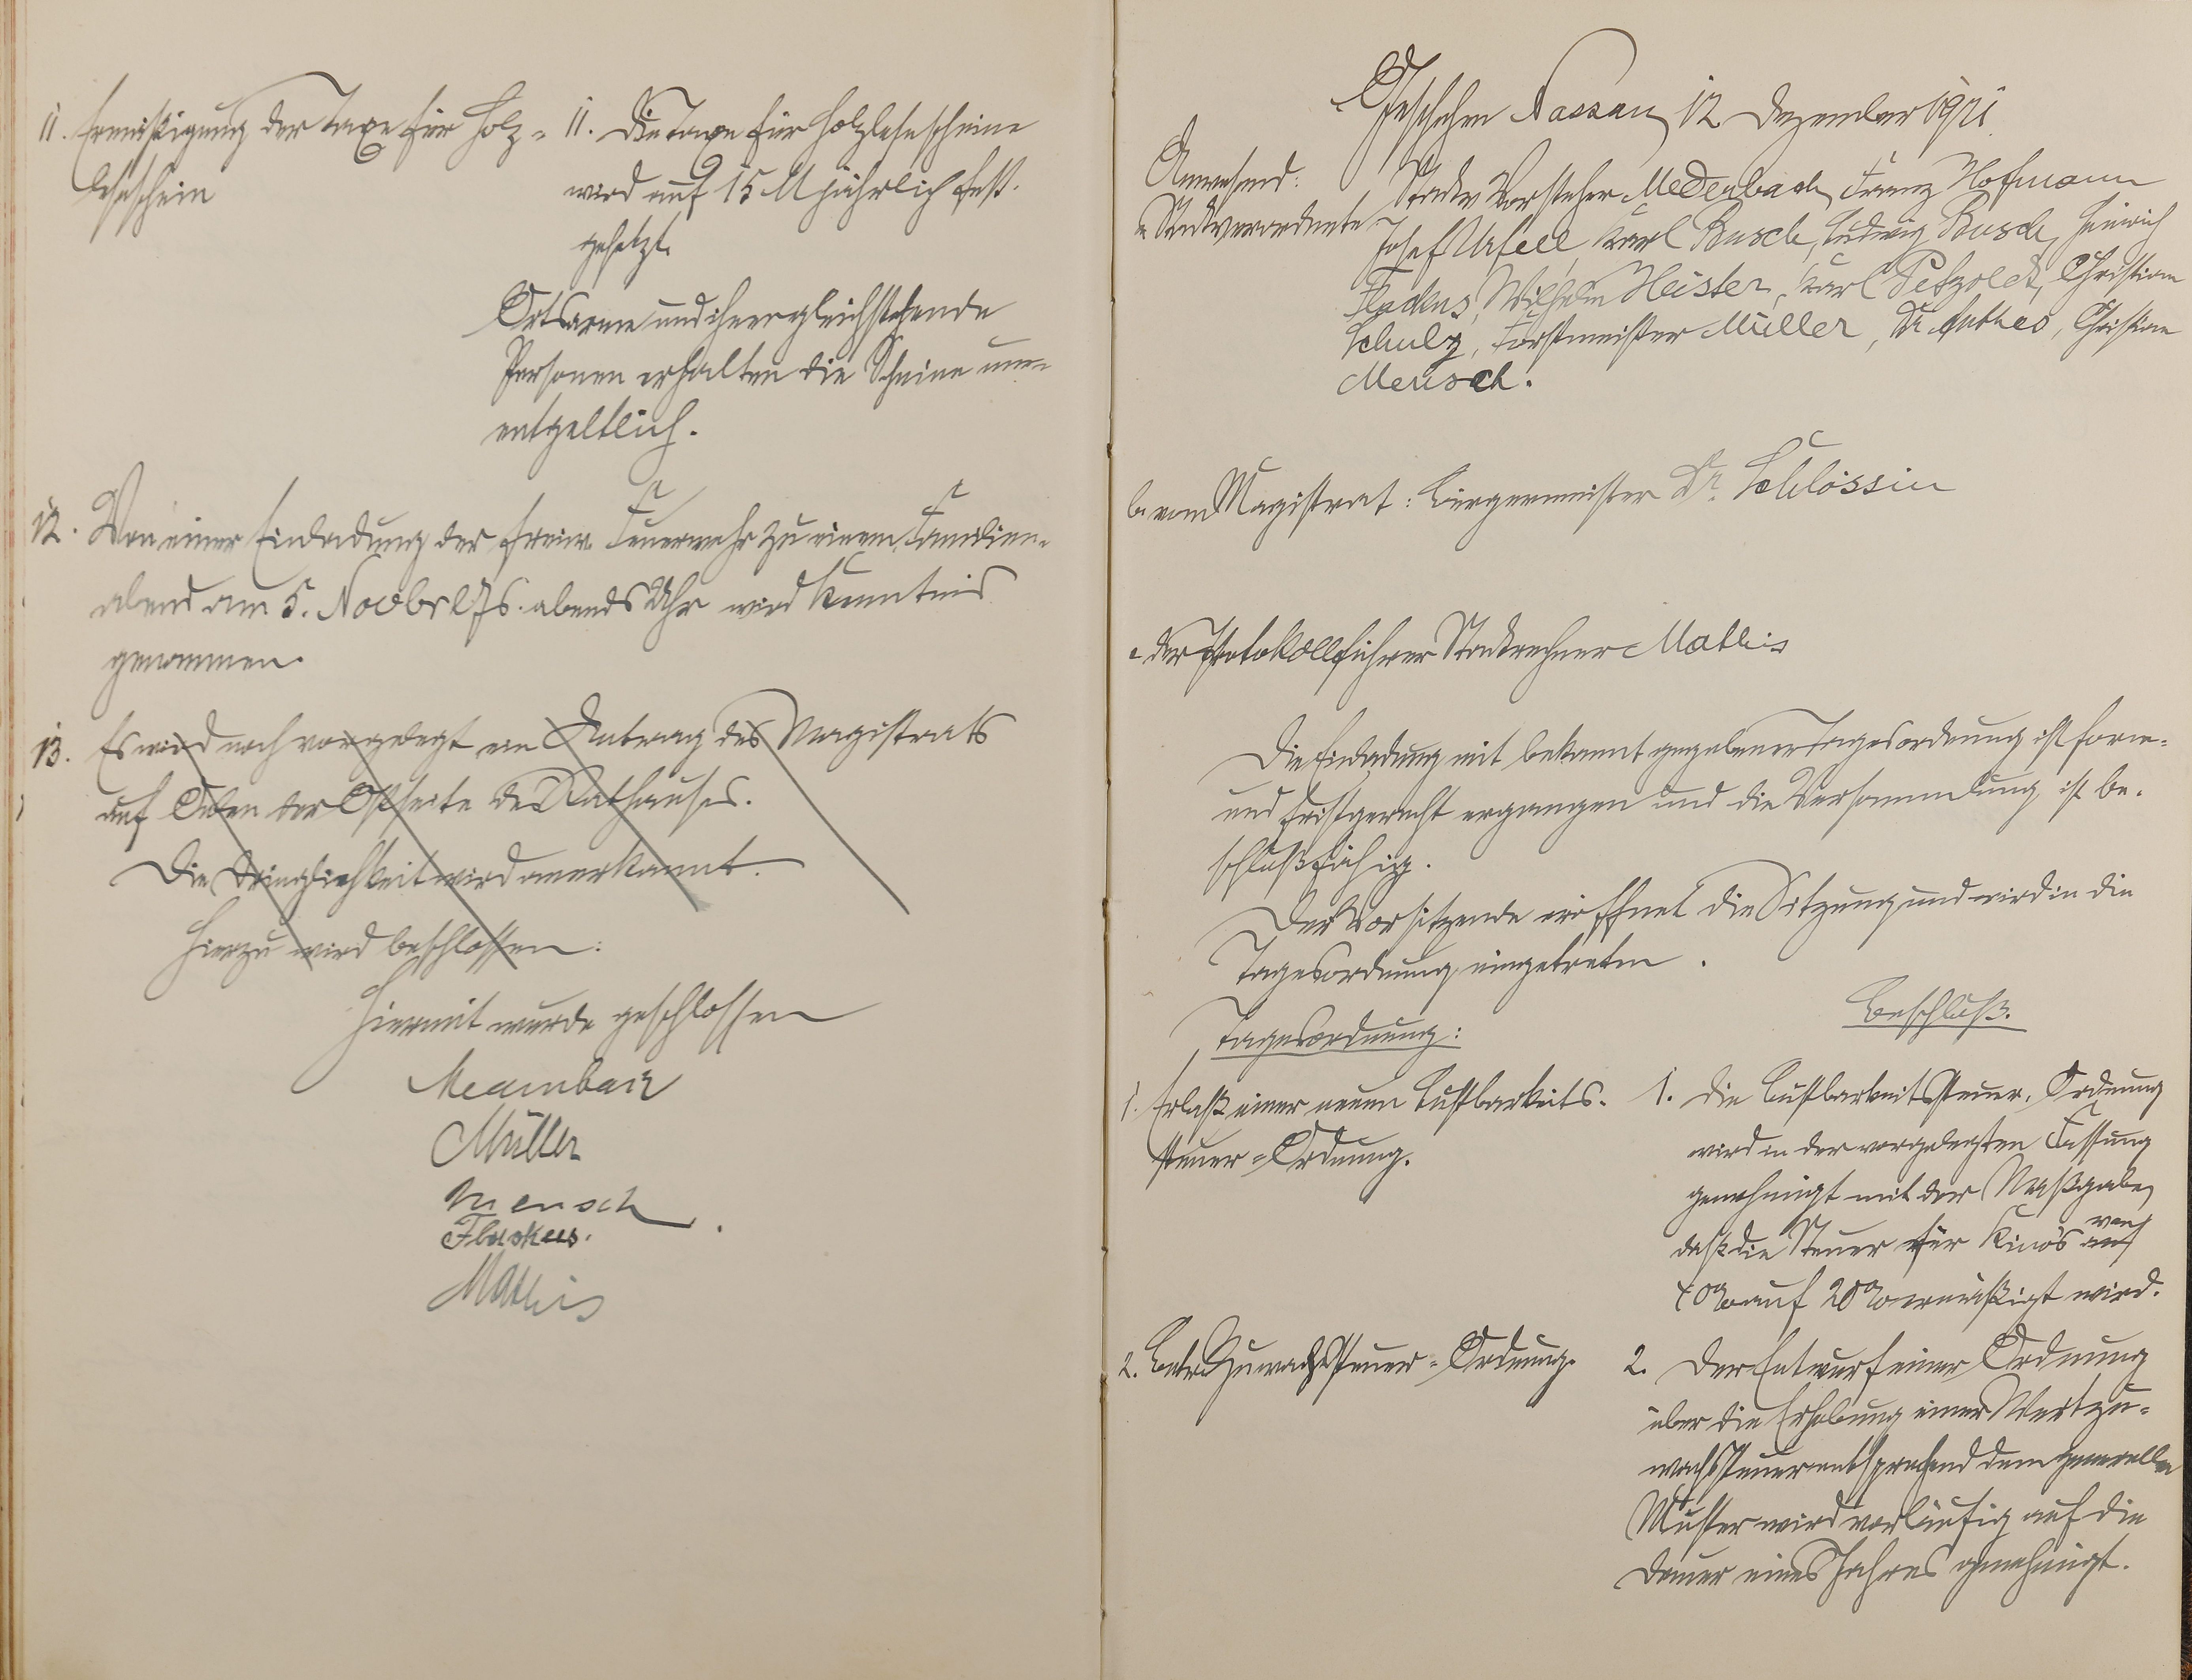 11. Ermäßigung der Taxe für Holz-
leseschein
11. Die Taxe für Holzlesescheine
wird auf 15 M jährlich fest-
gesetzt.
Ortsarme und ihnen gleichstehende
Personen erhalten die Scheine un-
entgeltlich.
12. Von einer Einladung der freiw. Feuerwehr zu einem Familien-
abend am 5. Novbr abends Uhr wird Kenntnis
genommen.
13. Es wird noch vorgelegt ein Antrag des Magistrats
auf der Ostseite des Rathauses.
Die Dringlichkeit wird anerkannt.
Hierzu wird beschlossen:
Hiermit wurde geschlossen
Müller
Mensch
Flackus.
Mathis
Geschehen Nassau, 12 Dezember 1921.
Anwesend:
Stadtverordnete
Stadtv Vorsteher Medenbach, Franz Hofmann
Josef Urfell, Karl Busch, Ludwig Busch, Heinrich
Flackus, Wilhelm Heister, Karl Petzold, Christian
Schulz, Forstmeister Müller, Dr. Anthes, Christian
Mensch.
b. vom Magistrat: Bürgermeister Dr. Schlössin
der Protokollführer Stadtrechner Mathis
Die Einladung mit bekannt gegebener Tagesordnung ist form-
und fristgerecht ergangen und die Versammlung ist be-
schlußfähig.
Der Vorsitzende eröffnet die Sitzung und wird in die
Tagesordnung eingetreten.
Tagesordnung:
Beschluß.
1. Erlaß einer neuen Lustbarkeits-
steuer-Ordnung.
1. Die Lustbarkeitssteuer-Ordnung
wird in der vorgelegten Fassung
genehmigt mit der Maßgabe,
daß die Steuer für Kino's von
40% auf 20% ermäßigt wird.
2. Betr. Zuwachssteuer-Ordnung.
2. Der Entwurf einer Ordnung
über die Erhebung einer Wertzu-
wachssteuer entsprechend dem generellen
Muster wird vorläufig auf die
Dauer eines Jahres genehmigt.